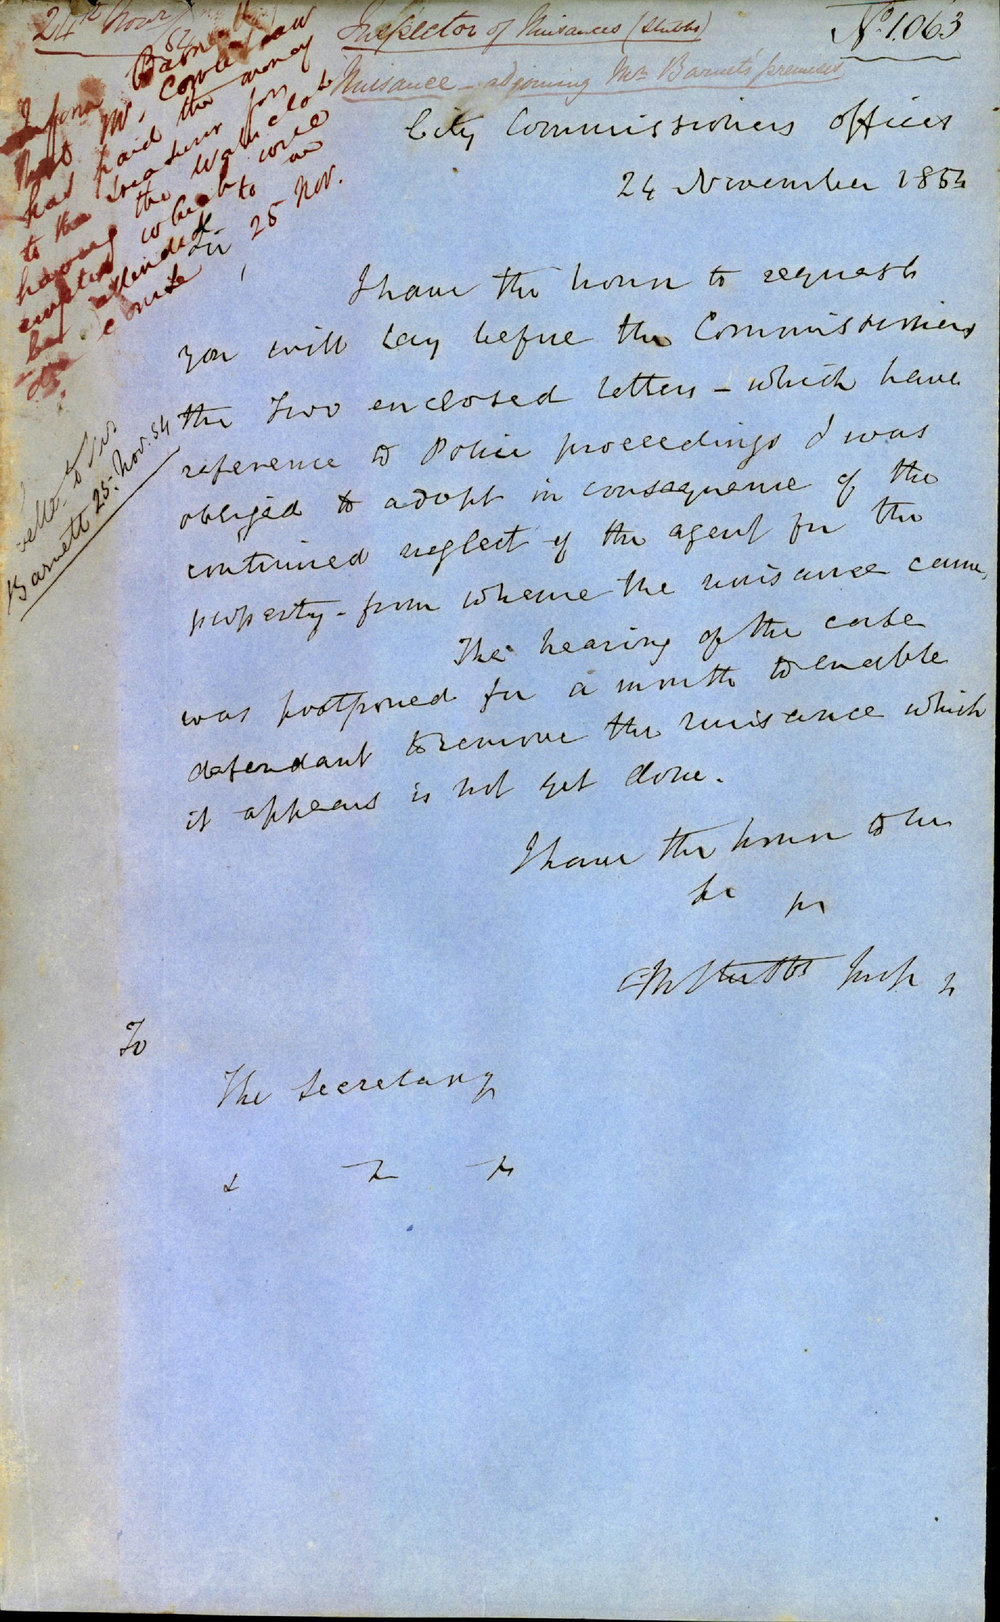 24th Novr/54
Inspector of Nuisances (Stubbs)
No. 1063
Nuisance - adjoining Mr. Barnett's premises
Inform Barnett
that Mr. Cowlishaw
has paid the money
to the Treasurer for
having the water closet
emptied which will
be attended to at
once
25 Nov.
Letter to
Barnett 25. Nov. 54
City Commissioners Offices
24 November 1854
Sir,
I have the honor to request
you will lay before the Commissioners
the Two enclosed letters - which have
reference to Police proceedings I was
obliged to adopt in consequence of the
continued neglect of the agent for the
property - from whence the nuisance came,
The hearing of the case
was postponed for a month to enable
defendant to remove the nuisance which
it appears is not yet done.
I have the honor to be
Stubbs Insp N
To
The Secretary